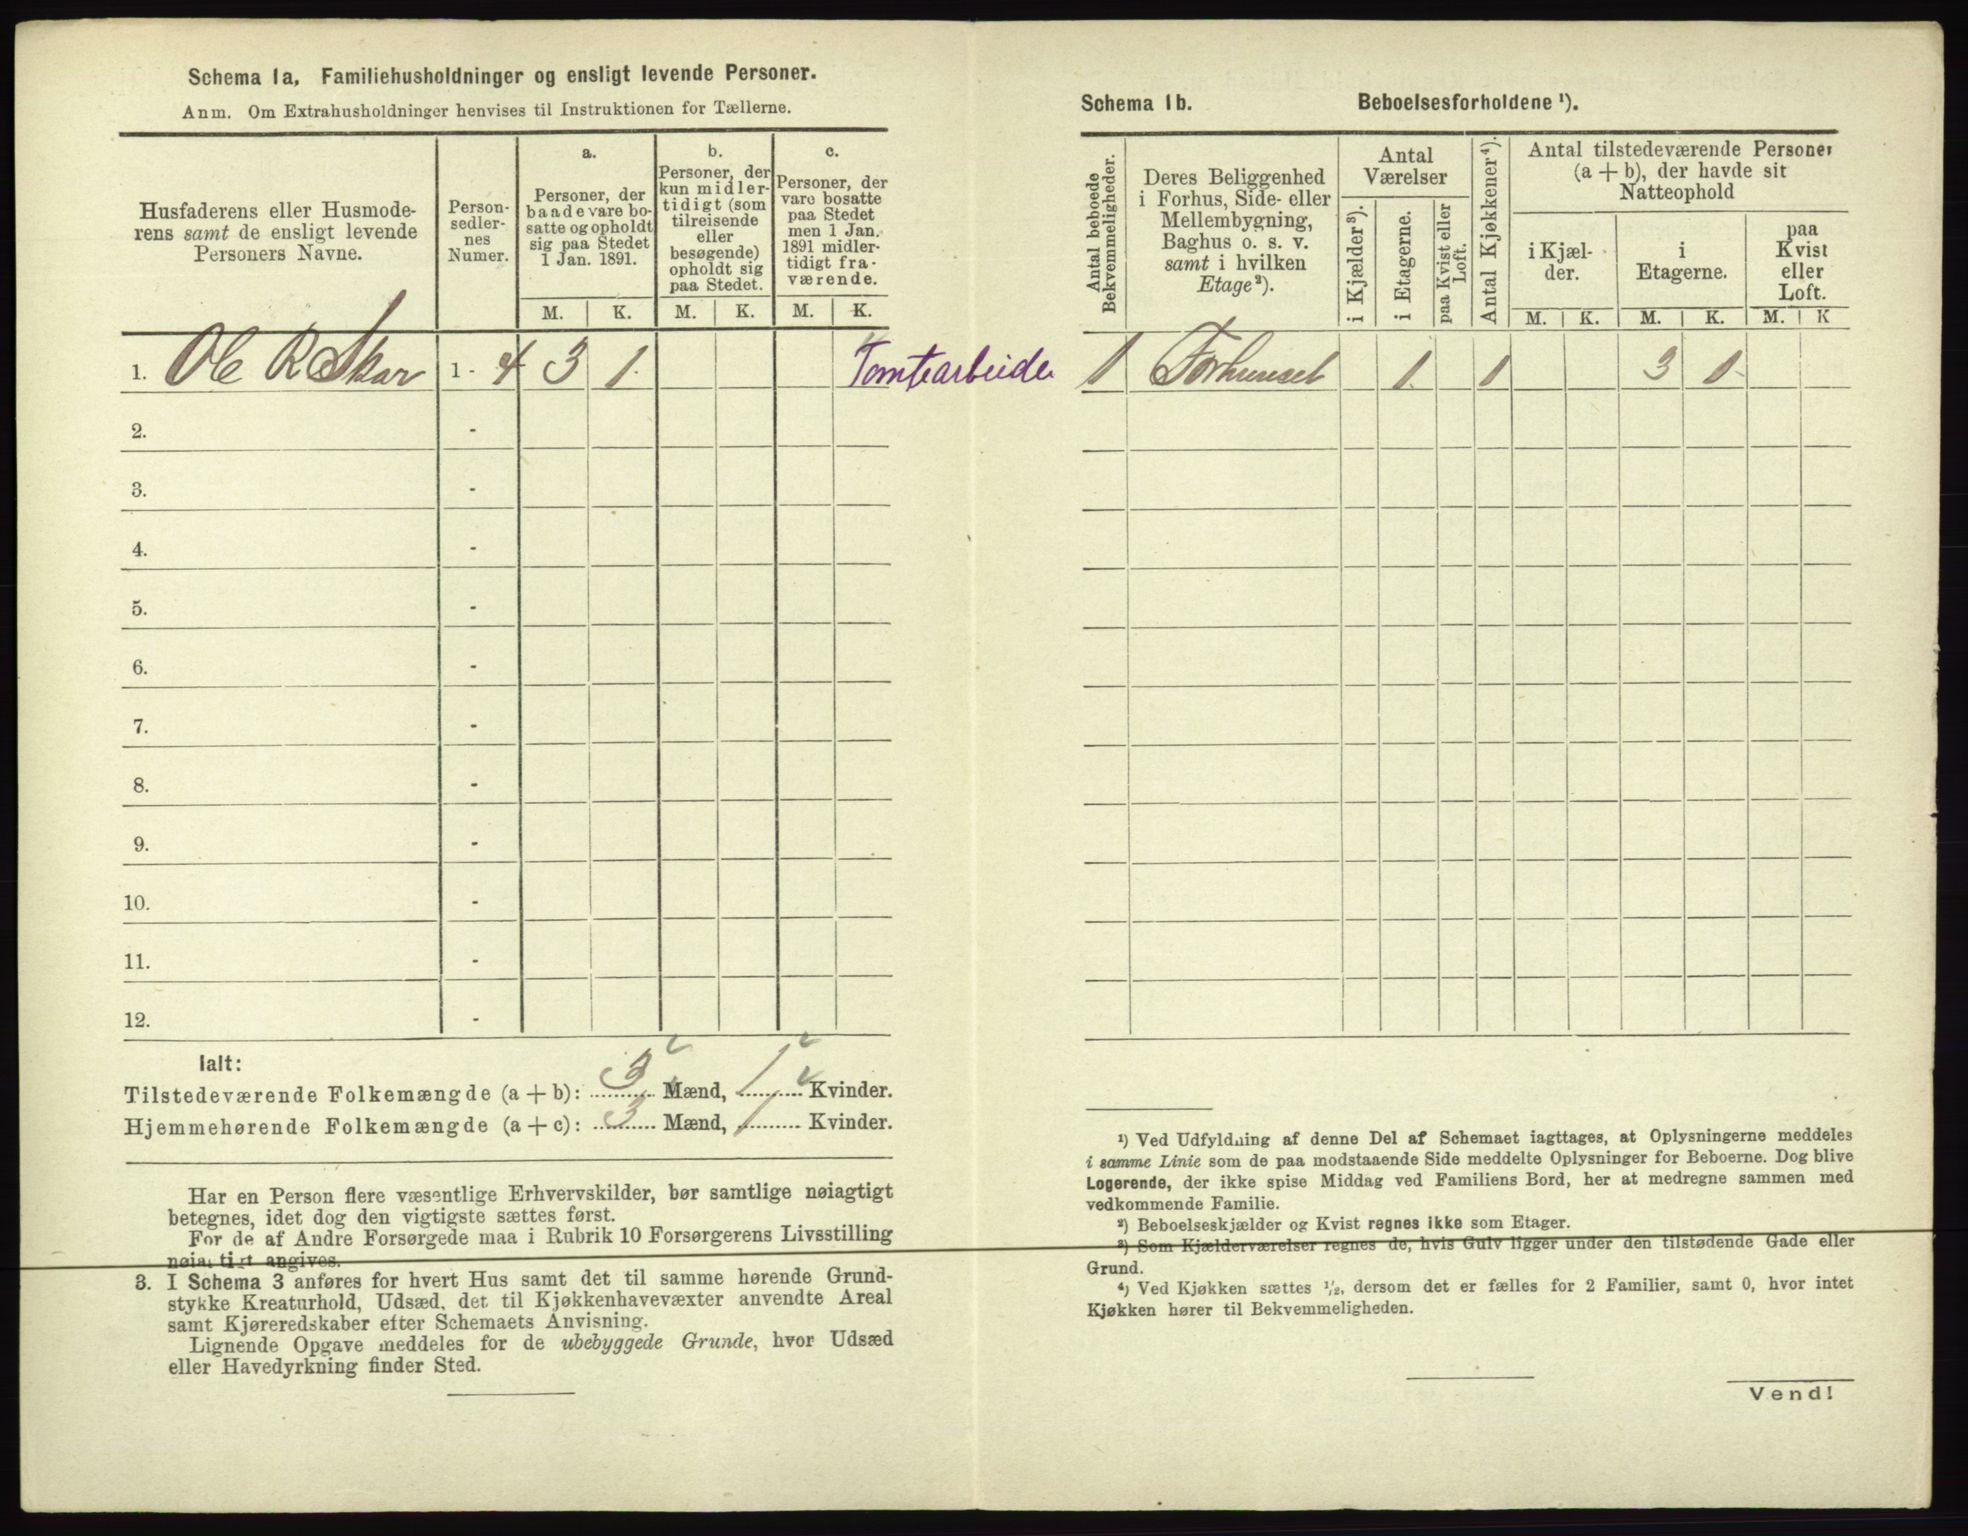 Schema 1a, Familiehusholdninger og ensligt levende Personer.
Anm. Om Extrahusholdninger henvises til Instruktionen for Tællerne.
Husfaderens eller Husmode-
rens samt de ensligt levende
Personers Navne.
Person-
sedler-
nes
Numer.
a.
Personer, der
baade vare bo-
satte og opholdt
sig paa Stedet
1 Jan. 1891.
b.
Personer, der
kun midler-
tidigt (som
tilreisende
eller
besøgende)
opholdt sig
paa Stedet.
c.
Personer, der
vare bosatte
paa Stedet
men 1 Jan.
1891 midler-
tidigt fra-
værende.
M. K. M. K. M. K.
1. Ole R Skar 1 - 4 3 1 Tomtearbeider
2. -
3. -
4. -
5. -
6. -
7. -
8. -
9. -
10. -
11. -
12. -
Ialt:
Tilstedeværende Folkemængde (a + b): 3 Mænd, 1 Kvinder.
Hjemmehørende Folkemængde (a + c): 3 Mænd, 1 Kvinder.
Har en Person flere væsentlige Erhvervskilder, bør samtlige nøiagtigt
betegnes, idet dog den vigtigste sættes først.
For de af Andre Forsørgede maa i Rubrik 10 Forsørgerens Livsstilling
nøiagtigt angives.
3. I Schema 3 anføres for hvert Hus samt det til samme hørende Grund-
stykke Kreaturhold, Udsæd, det til Kjøkkenhavevæxter anvendte Areal
samt Kjøreredskaber efter Schemaets Anvisning.
Lignende Opgave meddeles for de ubebyggede Grunde, hvor Udsæd
eller Havedyrkning finder Sted.
Schema 1b. Beboelsesforholdene ¹).
Antal beboede
Bekvemmeligheder.
Deres Beliggenhed
i Forhus, Side- eller
Mellembygning,
Baghus o. s. v.
samt i hvilken
Etage ²).
Antal
Værelser
i Kjælder ³).
i Etagerne.
paa Kvist eller
Loft.
Antal Kjøkkener ⁴).
Antal tilstedeværende Personer
(a + b), der havde sit
Natteophold
i Kjæl-
der.
i
Etagerne.
paa
Kvist
eller
Loft.
M. K. M. K. M. K
1 Forhuset 1 1 3 1
¹) Ved Udfyldning af denne Del af Schemaet iagttages, at Oplysningerne meddeles
i samme Linie som de paa modstaaende Side meddelte Oplysninger for Beboerne. Dog blive
Logerende, der ikke spise Middag ved Familiens Bord, her at medregne sammen med
vedkommende Familie.
²) Beboelseskjælder og Kvist regnes ikke som Etager.
³) Som Kjælderværelser regnes de, hvis Gulv ligger under den tilstødende Gade eller
Grund.
⁴) Ved Kjøkken sættes ¹/₂, dersom det er fælles for 2 Familier, samt 0, hvor intet
Kjøkken hører til Bekvemmeligheden.
Vend!